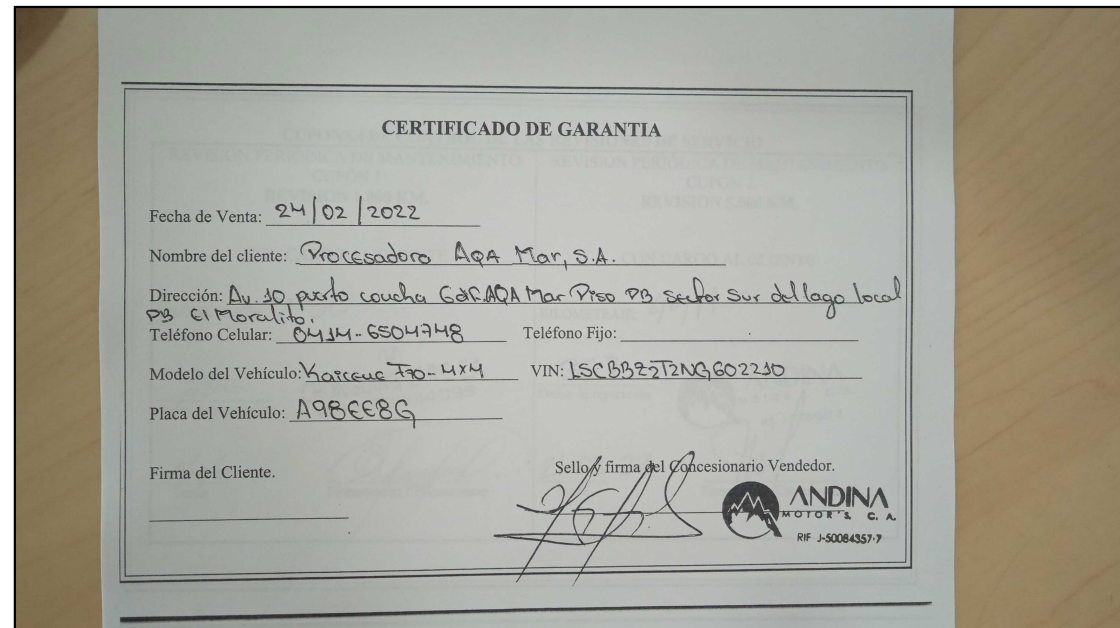 CERTIFICADO DE GARANTIA
Fecha de Venta: 24/02/2022
Nombre del cliente: Procesadora AQA Mar, S.A.
Dirección: Av. 10 puerto concha Edif. AQA Mar Piso PB Sector Sur del lago local
PB El Moralito.
Teléfono Celular: 0414-6504748 Teléfono Fijo:
Modelo del Vehículo: Kaicene F70-4x4 VIN: LSCBBZ2T2NG602210
Placa del Vehículo: A98EE8G
Firma del Cliente. Sello y firma del Concesionario Vendedor.
ANDINA
MOTOR'S C. A.
RIF J-50084357-7